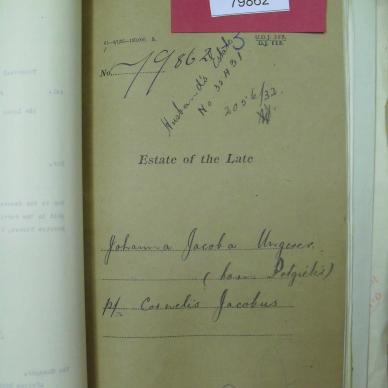 79862
U.D.J. 223.
D.J. 223.
No. 79862
Husband's Estate
No 32431
2056/32
Estate of the Late
Johanna Jacoba Ungerer
(born Potgieter)
p/. Cornelis Jacobus